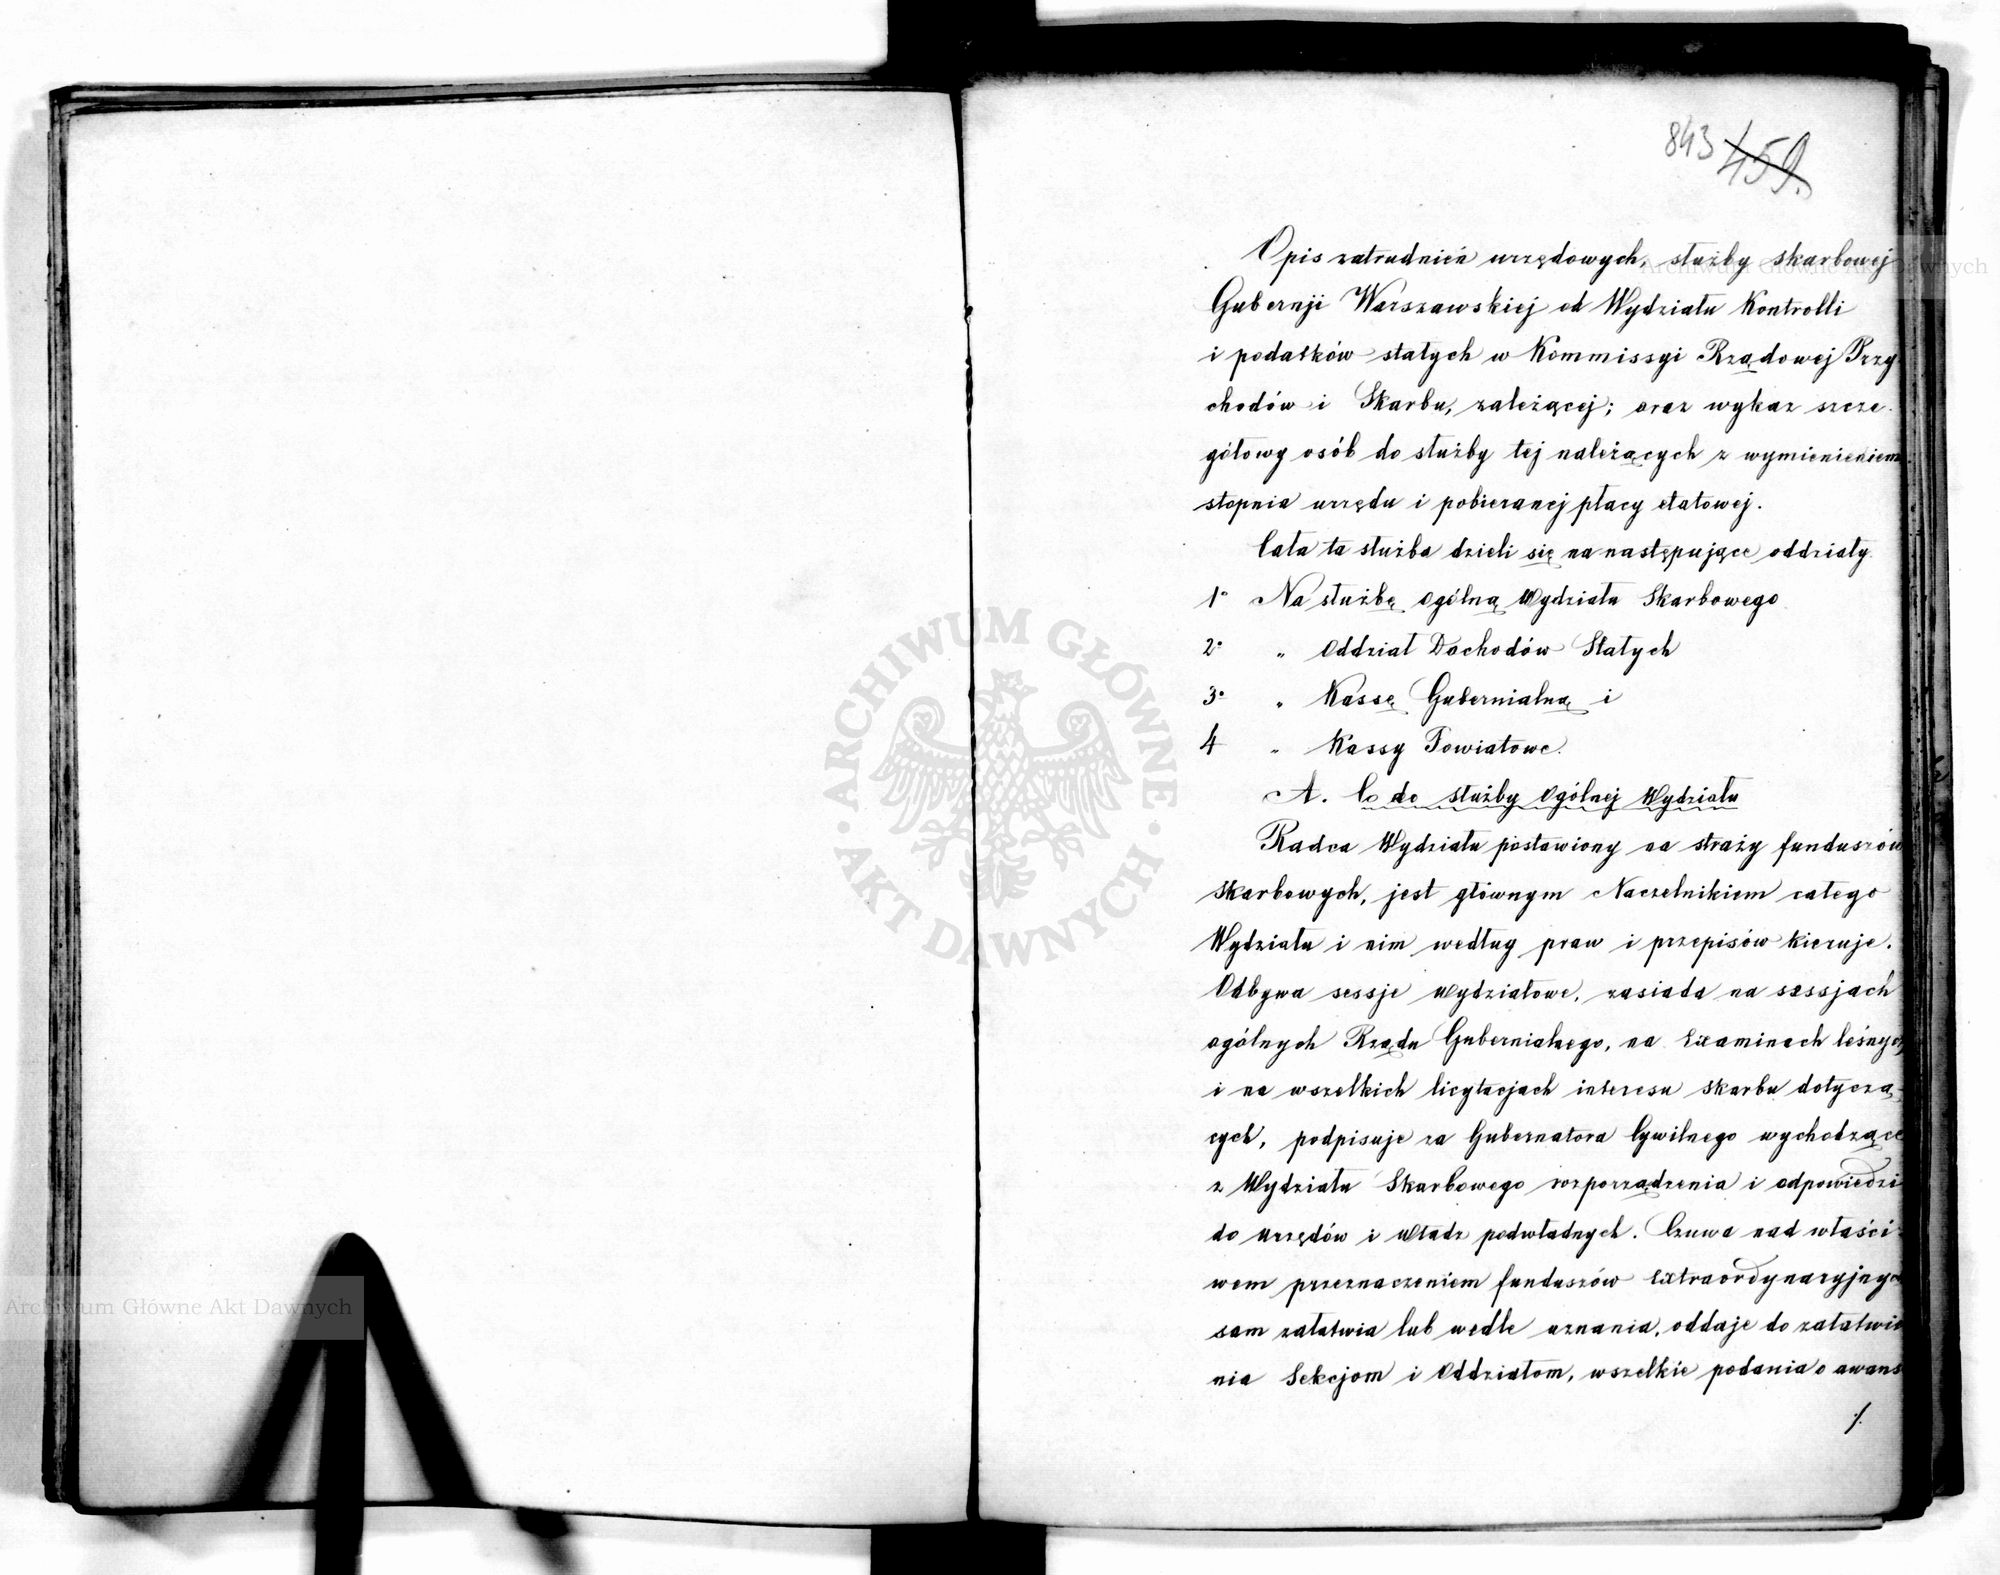 843 459.
Opis zatrudnień urzędowych, służby skarbowej
Gubernji Warszawskiej od Wydziału Kontrolli
i podatków stałych w Kommissyi Rządowej Przy
chodów i Skarbu, zależącej; oraz wykaz szcze-
gółowy osób do służby tej należących z wymienieniem
stopnia urzędu i pobieranej płacy etatowej.
Cała ta służba dzieli się na następujące oddziały
1° Na służbę ogólną Wydziału Skarbowego
2° " Oddział Dochodów Stałych
3° " Kassę Gubernialną i
4 " Kassy Powiatowe.
A. Co do służby Ogólnej Wydziału
Radca Wydziału postawiony na straży funduszów
Skarbowych, jest głównym Naczelnikiem całego
Wydziału i nim według praw i przepisów kieruje.
Odbywa sessje Wydziałowe, zasiada na sessjach
ogólnych Rządu Gubernialnego, na Examinach leśnych
i na wszelkich licytacjach interesu skarbu dotyczą
cych, podpisuje za Gubernatora Cywilnego wychodzące
z Wydziału Skarbowego rozporządzenia i odpowiedzi
do urzędów i Władz podwładnych. Czuwa nad właści-
wem przeznaczeniem funduszów Extraordynaryjnych
sam załatwia lub wedle uznania, oddaje do załatwie
nia Sekcjom i Oddziałom, wszelkie podania o awans
./.
ARCHIWUM GŁÓWNE
AKT DAWNYCH
Archiwum Główne Akt Dawnych
Archiwum Główne Akt Dawnych